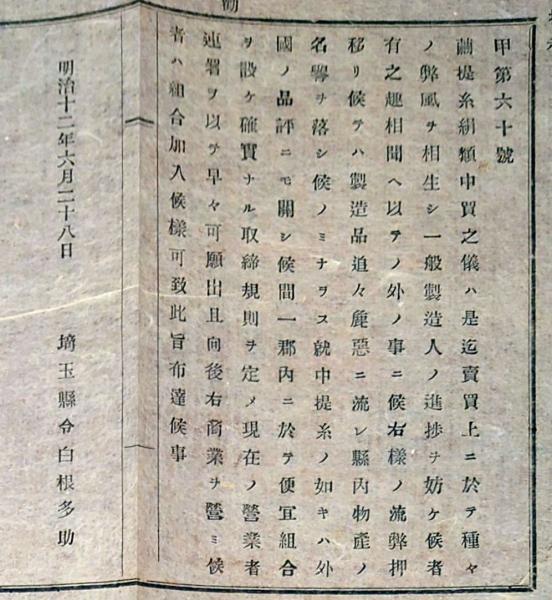 甲第六十號
繭提糸絹類中買之儀ハ是迄賣買上ニ於テ種々
ノ弊風ヲ相生シ一般製造人ノ進捗ヲ妨ケ候者
有之趣相聞ヘ以テノ外ノ事ニ候右樣ノ流弊押
移リ候テハ製造品追々麁惡ニ流レ縣內物產ノ
名譽ヲ落シ候ノミナラス就中提糸ノ如キハ外
國ノ品評ニモ關シ候間一郡內ニ於テ便宜組合
ヲ設ケ確實ナル取締規則ヲ定メ現在ノ營業者
連署ヲ以テ早々可願出且向後右商業ヲ營ミ候
者ハ組合加入候樣可致此旨布達候事
明治十二年六月二十八日 埼玉縣令白根多助